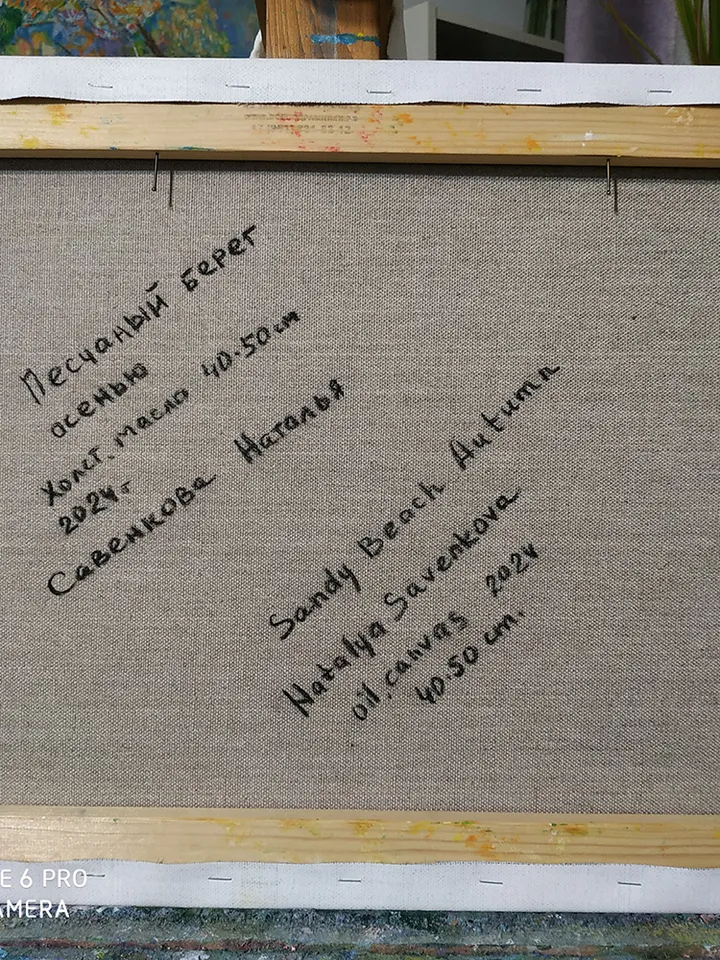 Песчаный берег
осенью
Холст, масло 40.50 см
2024г
Савенкова Наталья
Sandy Beach Autumn
Natalya Savenkova
oil, canvas 2024
40.50 cm.
E 6 PRO
AMERA